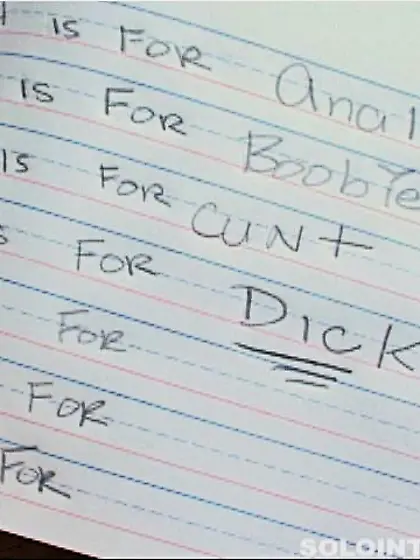 is FOR Anal
is FOR Boobie
is FOR CUNT
FOR DICK
FOR
FOR
FOR
SOLOINT